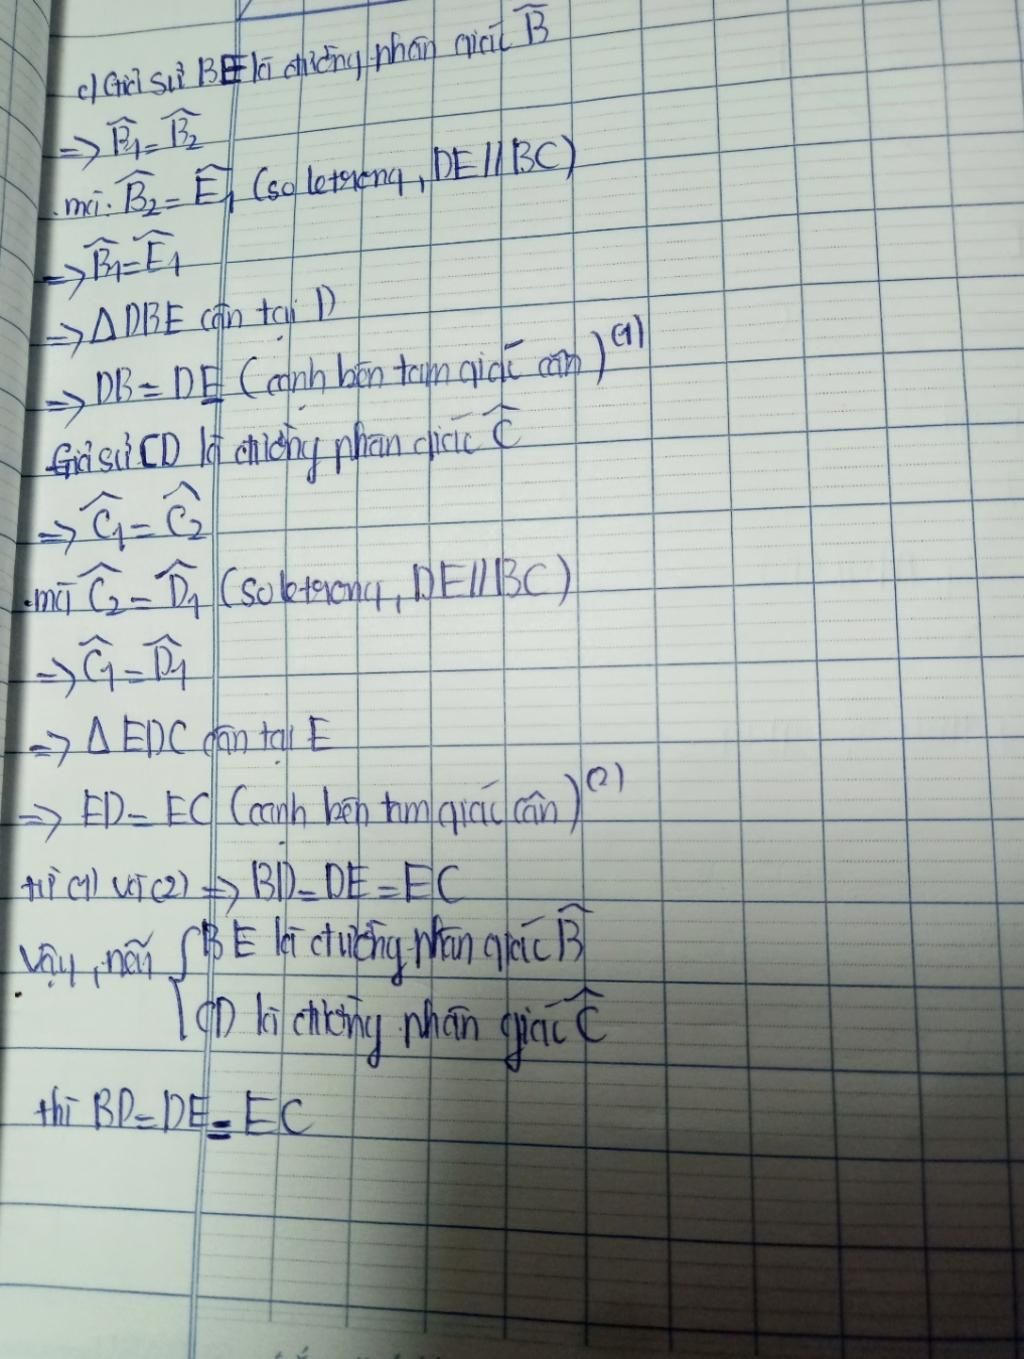 c) Giả sử BE là đường phân giác B̂
=> B̂₁ = B̂₂
mà: B̂₂ = Ê₁ (so le trong, DE // BC)
=> B̂₁ = Ê₁
=> ΔDBE cân tại D
=> DB = DE (cạnh bên tam giác cân) (1)
Giả sử CD là đường phân giác Ĉ
=> Ĉ₁ = Ĉ₂
mà Ĉ₂ = D̂₁ (so le trong, DE // BC)
=> Ĉ₁ = D̂₁
=> Δ EDC cân tại E
=> ED = EC (cạnh bên tam giác cân) (2)
từ (1) và (2) => BD = DE = EC
Vậy, nếu { BE là đường phân giác B̂
CD là đường phân giác Ĉ
thì BD = DE = EC